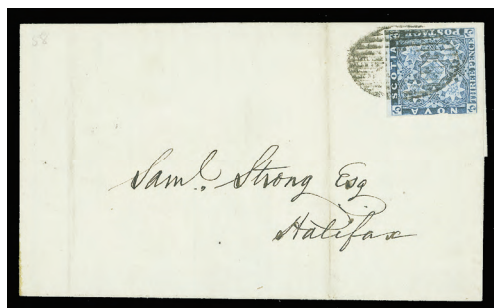 58
NOVA
SCOTIA
POSTAGE
Saml. Strong Esq
Halifax